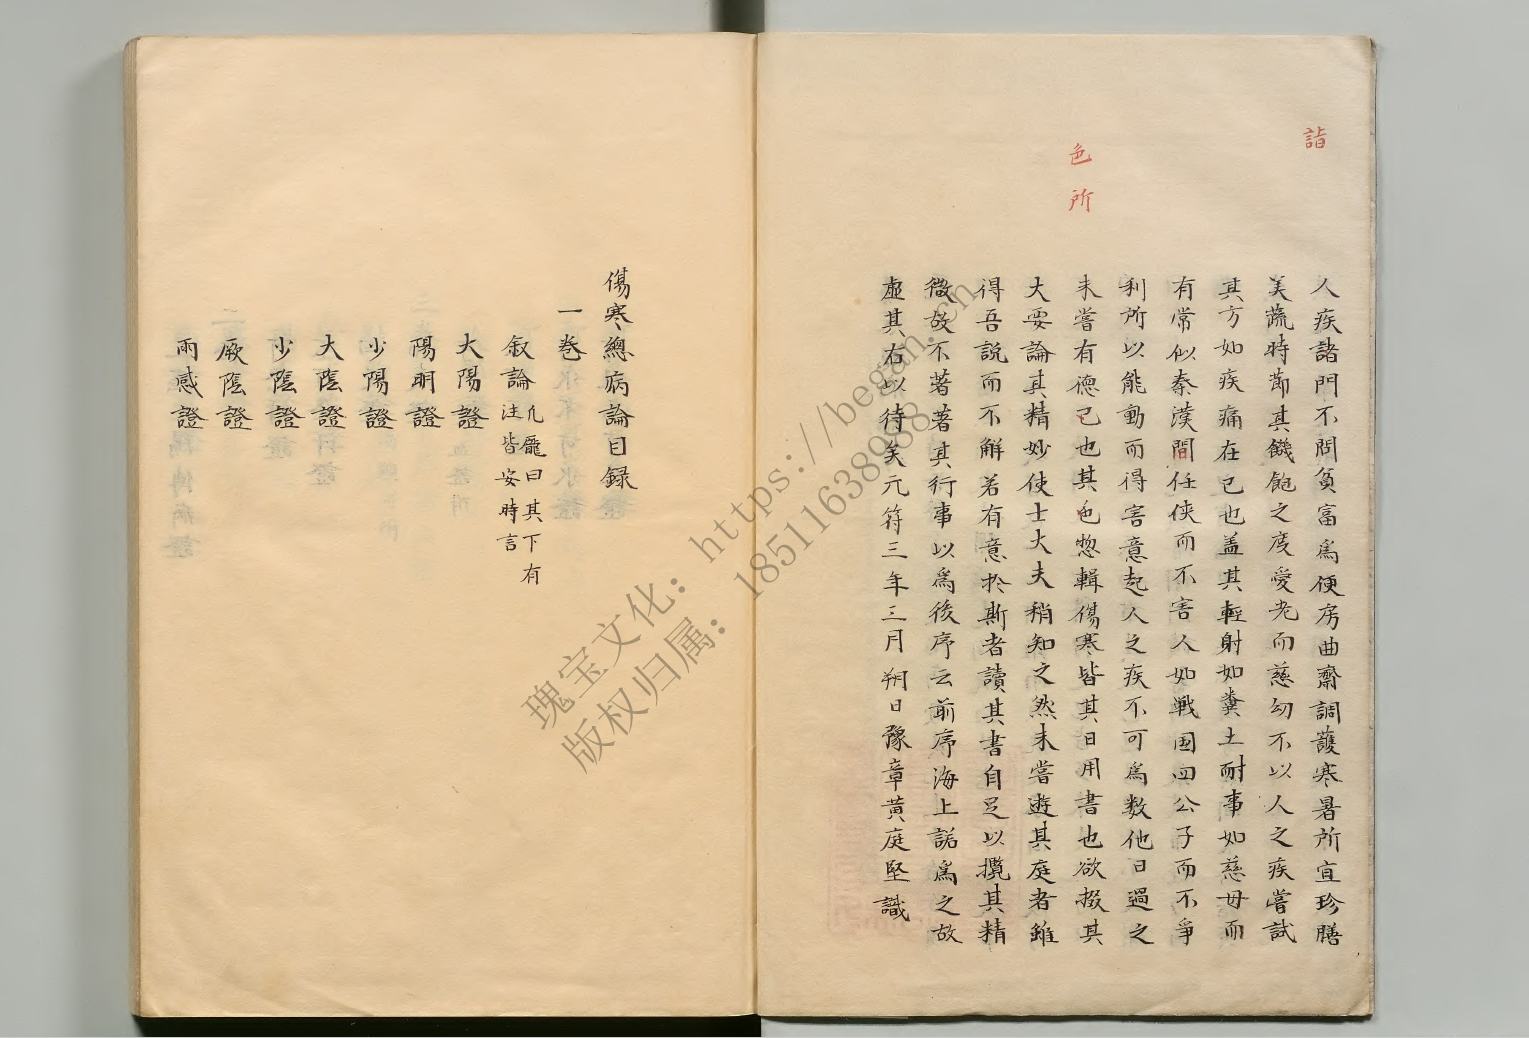 詣
色
所
人疾諸門不問貧富爲便房曲齋調護寒暑所宜珍膳
美蔬時節其饑飽之度愛老而慈幼不以人之疾嘗試
其方如疾痛在已也盖其輕射如糞土耐事如慈母而
有常似秦漢間任俠而不害人如戦国四公子而不爭
利所以能動而得害意起人之疾不可爲数他日過之
未嘗有德已也其色惣輯傷寒皆其日用書也欲掇其
大要論其精妙使士大夫稍知之然未嘗遊其庭者雖
得吾説而不解若有意於斯者讀其書自足以攬其精
微故不著著其行事以爲後序云前序海上諾爲之故
虚其右以待矣元符三年三月朔日豫章黄庭堅識
傷寒總病論目録
一卷
叙論凢龐曰其下有
注皆安時言
大陽證
陽明證
少陽證
大陰證
少陰證
厥陰證
兩感證
瑰宝文化：https://began.cn
版权归属：18511638988